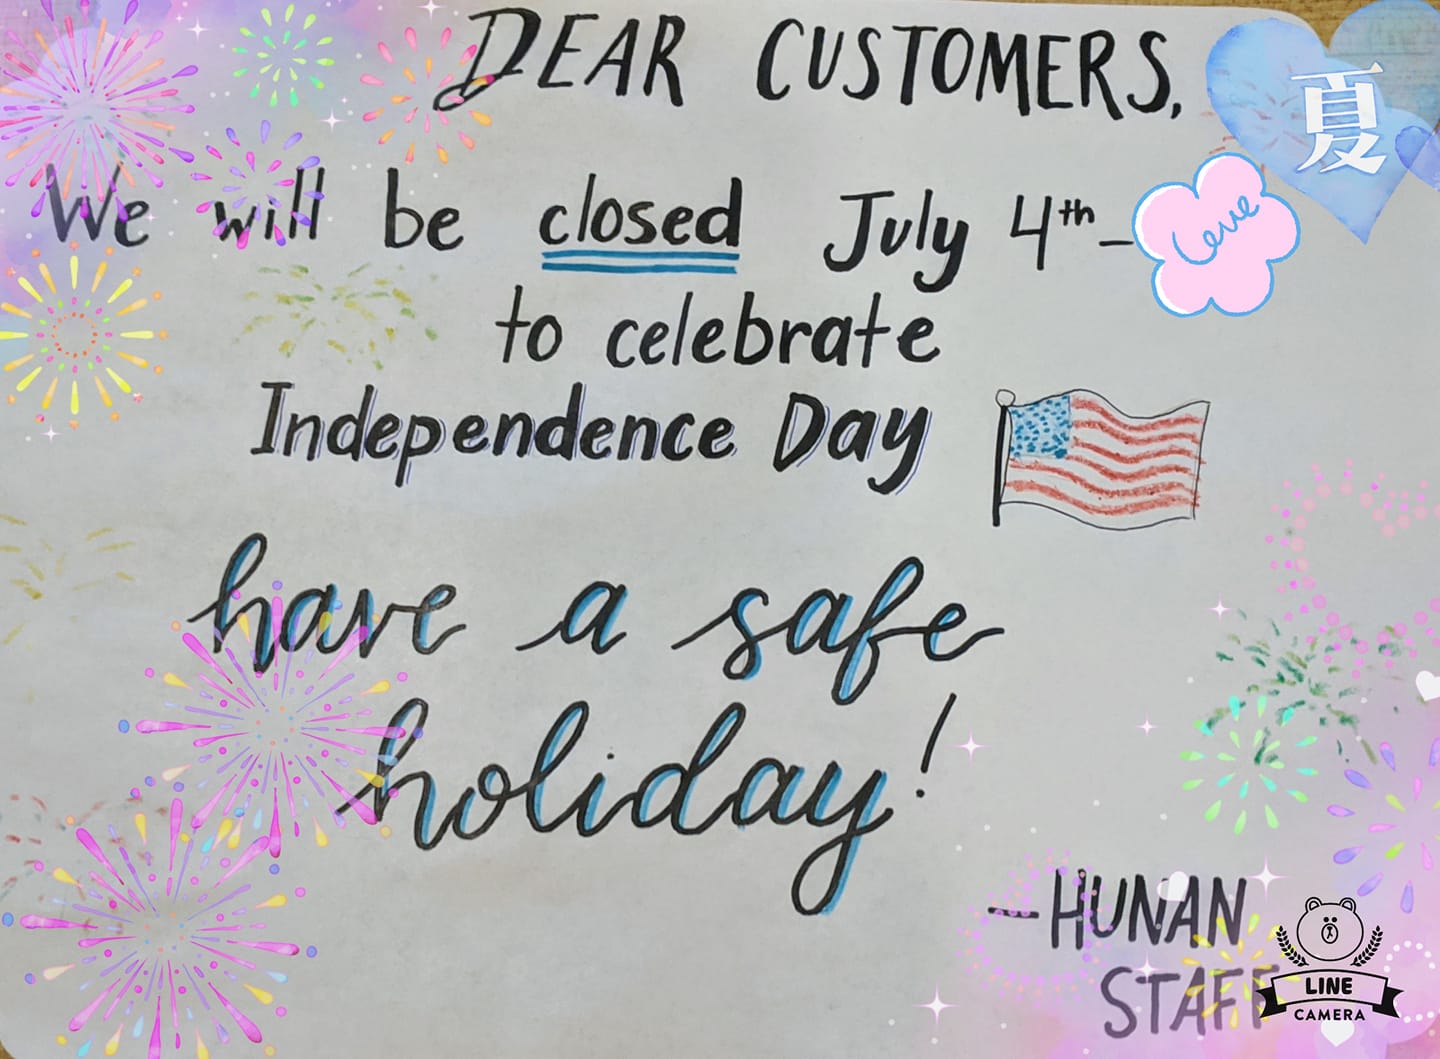 DEAR CUSTOMERS,
夏
We will be closed July 4th –
Love
to celebrate
Independence Day
have a safe
holiday!
– HUNAN
STAFF
LINE
CAMERA